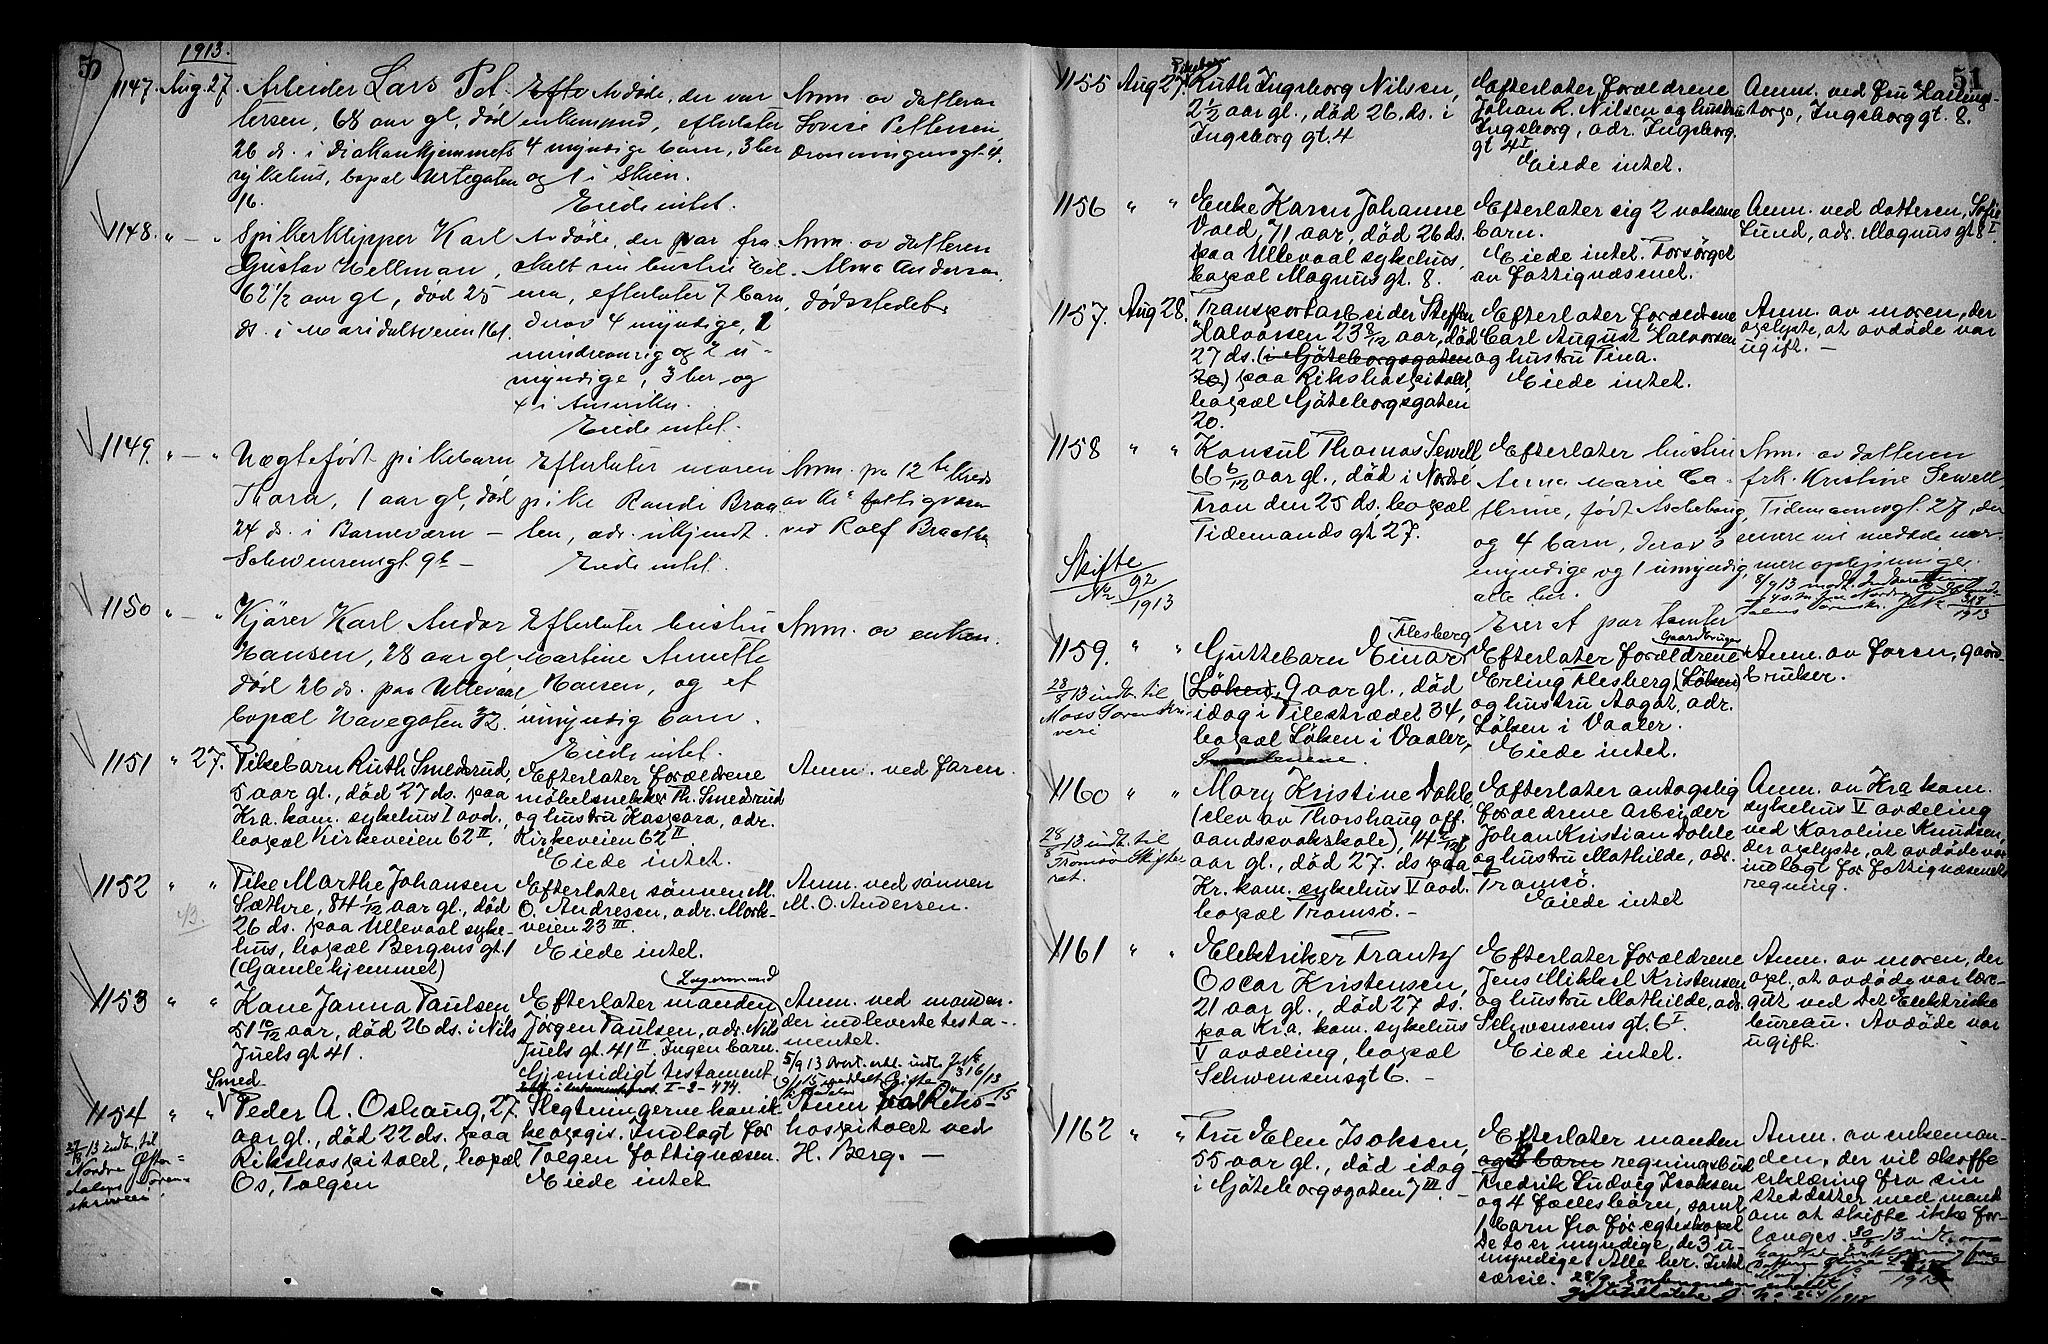 50
1913.
1147. Aug. 27. Arbeider Lars Pet-
tersen, 68 aar gl., død
26 ds. i Diakonhjemmets
sykehus, bopæl Urtegaten
16.
Efte Avdøde, der var
enkemand, efterlater
4 myndige barn, 3 her
og 1 i Skien.
Eiede intet.
Anm. av datteren
Lovise Pettersen
Dronningensgt. 4.
1148. " — " Spikerklipper Karl
Gustav Hellman,
62 1/2 aar gl., død 25
ds. i Maridalsveien 161.
Avdøde, der var fra
skilt sin hustru
efterlater 7 barn,
derav 4 myndige, 1
mindreaarig og 2 u-
myndige, 3 her og
4 i Amerika.
Eiede intet.
Anm. av datteren
Alma Andersen
dødsstedet.
1149. " — " Uægtefødt pikebarn
Thora, 1 aar gl., død
24 ds. i Barneværn —
Schwensensgt. 9b —
Efterlater moren
pike Randi Braa
ten, adr. ukjendt.
Eiede intet.
Anm. pr 12te kreds
av Kra fattigvæsen
ved Rolf Braathe
1150 " — " Kjører Karl Andor
Hansen, 28 aar gl.,
død 26 ds. paa Ullevaal
bopæl Havegaten 32.
Efterlater hustru
Martine Annette
Hansen, og et
umyndig barn.
Eiede intet.
Anm. av enken.
1151 " 27. Pikebarn Ruth Smedsrud,
5 aar gl., død 27 ds. paa
Kra. kom. sykehus I avd.,
bopæl Kirkeveien 62 II.
Efterlater forældrene
møbelsnekker Th. Smedsrud
og hustru Kaspara, adr.
Kirkeveien 62 II
Eiede intet.
Anm. ved faren.
1152 " " Pike Marthe Johansen
Sæthre, 84 1/12 aar gl., død
26 ds. paa Ullevaal syke-
hus, bopæl Bergens gt 1
(Gamlehjemmet)
Efterlater sønnen M.
O. Andresen, adr. Mark-
veien 23 III.
Eiede intet.
Anm. ved sønnen
M. O. Andersen.
1153 " " Kone Janna Paulsen
51 10/12 aar, død 26 ds. i Nils
Juels gt 41.
(Lagermand
Efterlater manden)
Jørgen Paulsen, adr. Nils
Juels gt. 41 II. Ingen barn.
Gjensidig testament
I-2-474.
Anm. ved manden.
der indleverte testa-
mentet.
1154 " " Smed
Peder A. Oshaug, 27
aar gl., død 22 ds. paa
Rikshospitalet, bopæl
Os, Tolgen
27/8 13 indb. til
Nordre Øster-
dalens Soren-
skriveri.
Slegtningerne kan ik
ke opgis. Indlagt for
Tolgen fattigvæsen.
Eiede intet
Anm fra Riks-
hospitalet ved
H. Berg. —
51
1155 Aug 27. Pikebarn
Ruth Ingeborg Nilsen,
2 1/2 aar gl., død 26. ds. i
Ingeborg gt. 4
Efterlater forældrene
Johan R. Nilsen og hustru
Ingeborg, adr. Ingeborg
gt 4 I.
Eiede intet.
Anm. ved fru Hallings-
torp, Ingeborg gt. 8.
1156 " " Enke Karen Johanne
Vold, 71 aar, død 26 ds.
paa Ullevaal sykehus,
bopæl Magnus gt. 8.
Efterlater sig 2 voksne
barn.
Eiede intet. Forsørget
av fattigvæsenet.
Anm. ved datteren, Sofie
Lund, adr. Magnus gt 8 I.
1157. Aug 28. Transportarbeider Steffen
Halvorsen 23 8/12 aar, død
27 ds. (i Göteborgsgaten
20) paa Rikshospitalet,
bopæl Göteborgsgaten
20.
Efterlater forældrene
Carl August Halvorsen
og hustru Tina.
Eiede intet.
Anm. av moren, der
oplyste, at avdøde var
ugift. —
1158 " " Konsul Thomas Sewell
66 6/12 aar gl., død i Nordre
Fron den 25 ds., bopæl
Tidemands gt 27.
Skifte
No 92/1913
Efterlater hustru
Anna Marie Ca-
thrine, født Ascheboug,
og 4 barn, derav 3
myndige og 1 umyndig,
alle her.
Eier et par tomter
Anm. av datteren
frk. Kristine Sewell,
Tidemannsgt. 27, der
senere vil meddele nær-
mere oplysninger.
1159. " " Guttebarn Einar Flesberg
(Løken), 9 aar gl., død
idag i Pilestrædet 34,
bopæl Løken i Vaaler,
28/8 13 indb. til
Moss Sorenskri-
veri
Efterlater forældrene Gaardbruger
Erling Flesberg (Løken)
og hustru Aagot, adr.
Løken i Vaaler.
Eiede intet.
Anm. av faren, gaard-
bruker.
1160 " " Mary Kristine Dahle
(elev av Thorshaug off.
aandssvakskole), 14 2/12
aar gl., død 27. ds paa
Kr. kom. sykehus V avd.
bopæl Tromsø. —
28/8 13 indb. til
Tromsø Skifte-
ret.
Efterlater antagelig
forældrene Arbeider
Johan Kristian Dahle
og hustru Mathilde, adr.
Tromsø.
Eiede intet
Anm. av Kra kom.
sykehus V avdeling
ved Karoline Knudsen,
der oplyste, at avdøde var
indlagt for fattigvæsenets
regning.
1161 " " Elektriker Frantz
Oscar Kristensen,
21 aar gl., død 27 ds.
paa Kra. kom. sykehus
V avdeling, bopæl
Schwensens gt 6. —
Efterlater forældrene
Jens Mikkel Kristensen
og hustru Mathilde, adr.
Schwensens gt. 6 I.
Eiede intet.
Anm. av moren, der
opl., at avdøde var lære-
gut ved Det Elektriske
bureau. Avdøde var
ugift.
1162 " " Fru Elen Isaksen,
55 aar gl., død idag
i Göteborgsgaten 7 III. —
Efterlater manden
og 5 barn regningsbud
Fredrik Ludvig Isaksen
og 4 fællesbörn, samt
1 barn fra før egteskapet
De to er myndige, de 3 u-
myndige. Alle her. Intet
særeie.
Anm. av enkeman-
den, der vil skaffe
erklæring fra sin
steddatter med mand
om at skifte ikke for-
langes.